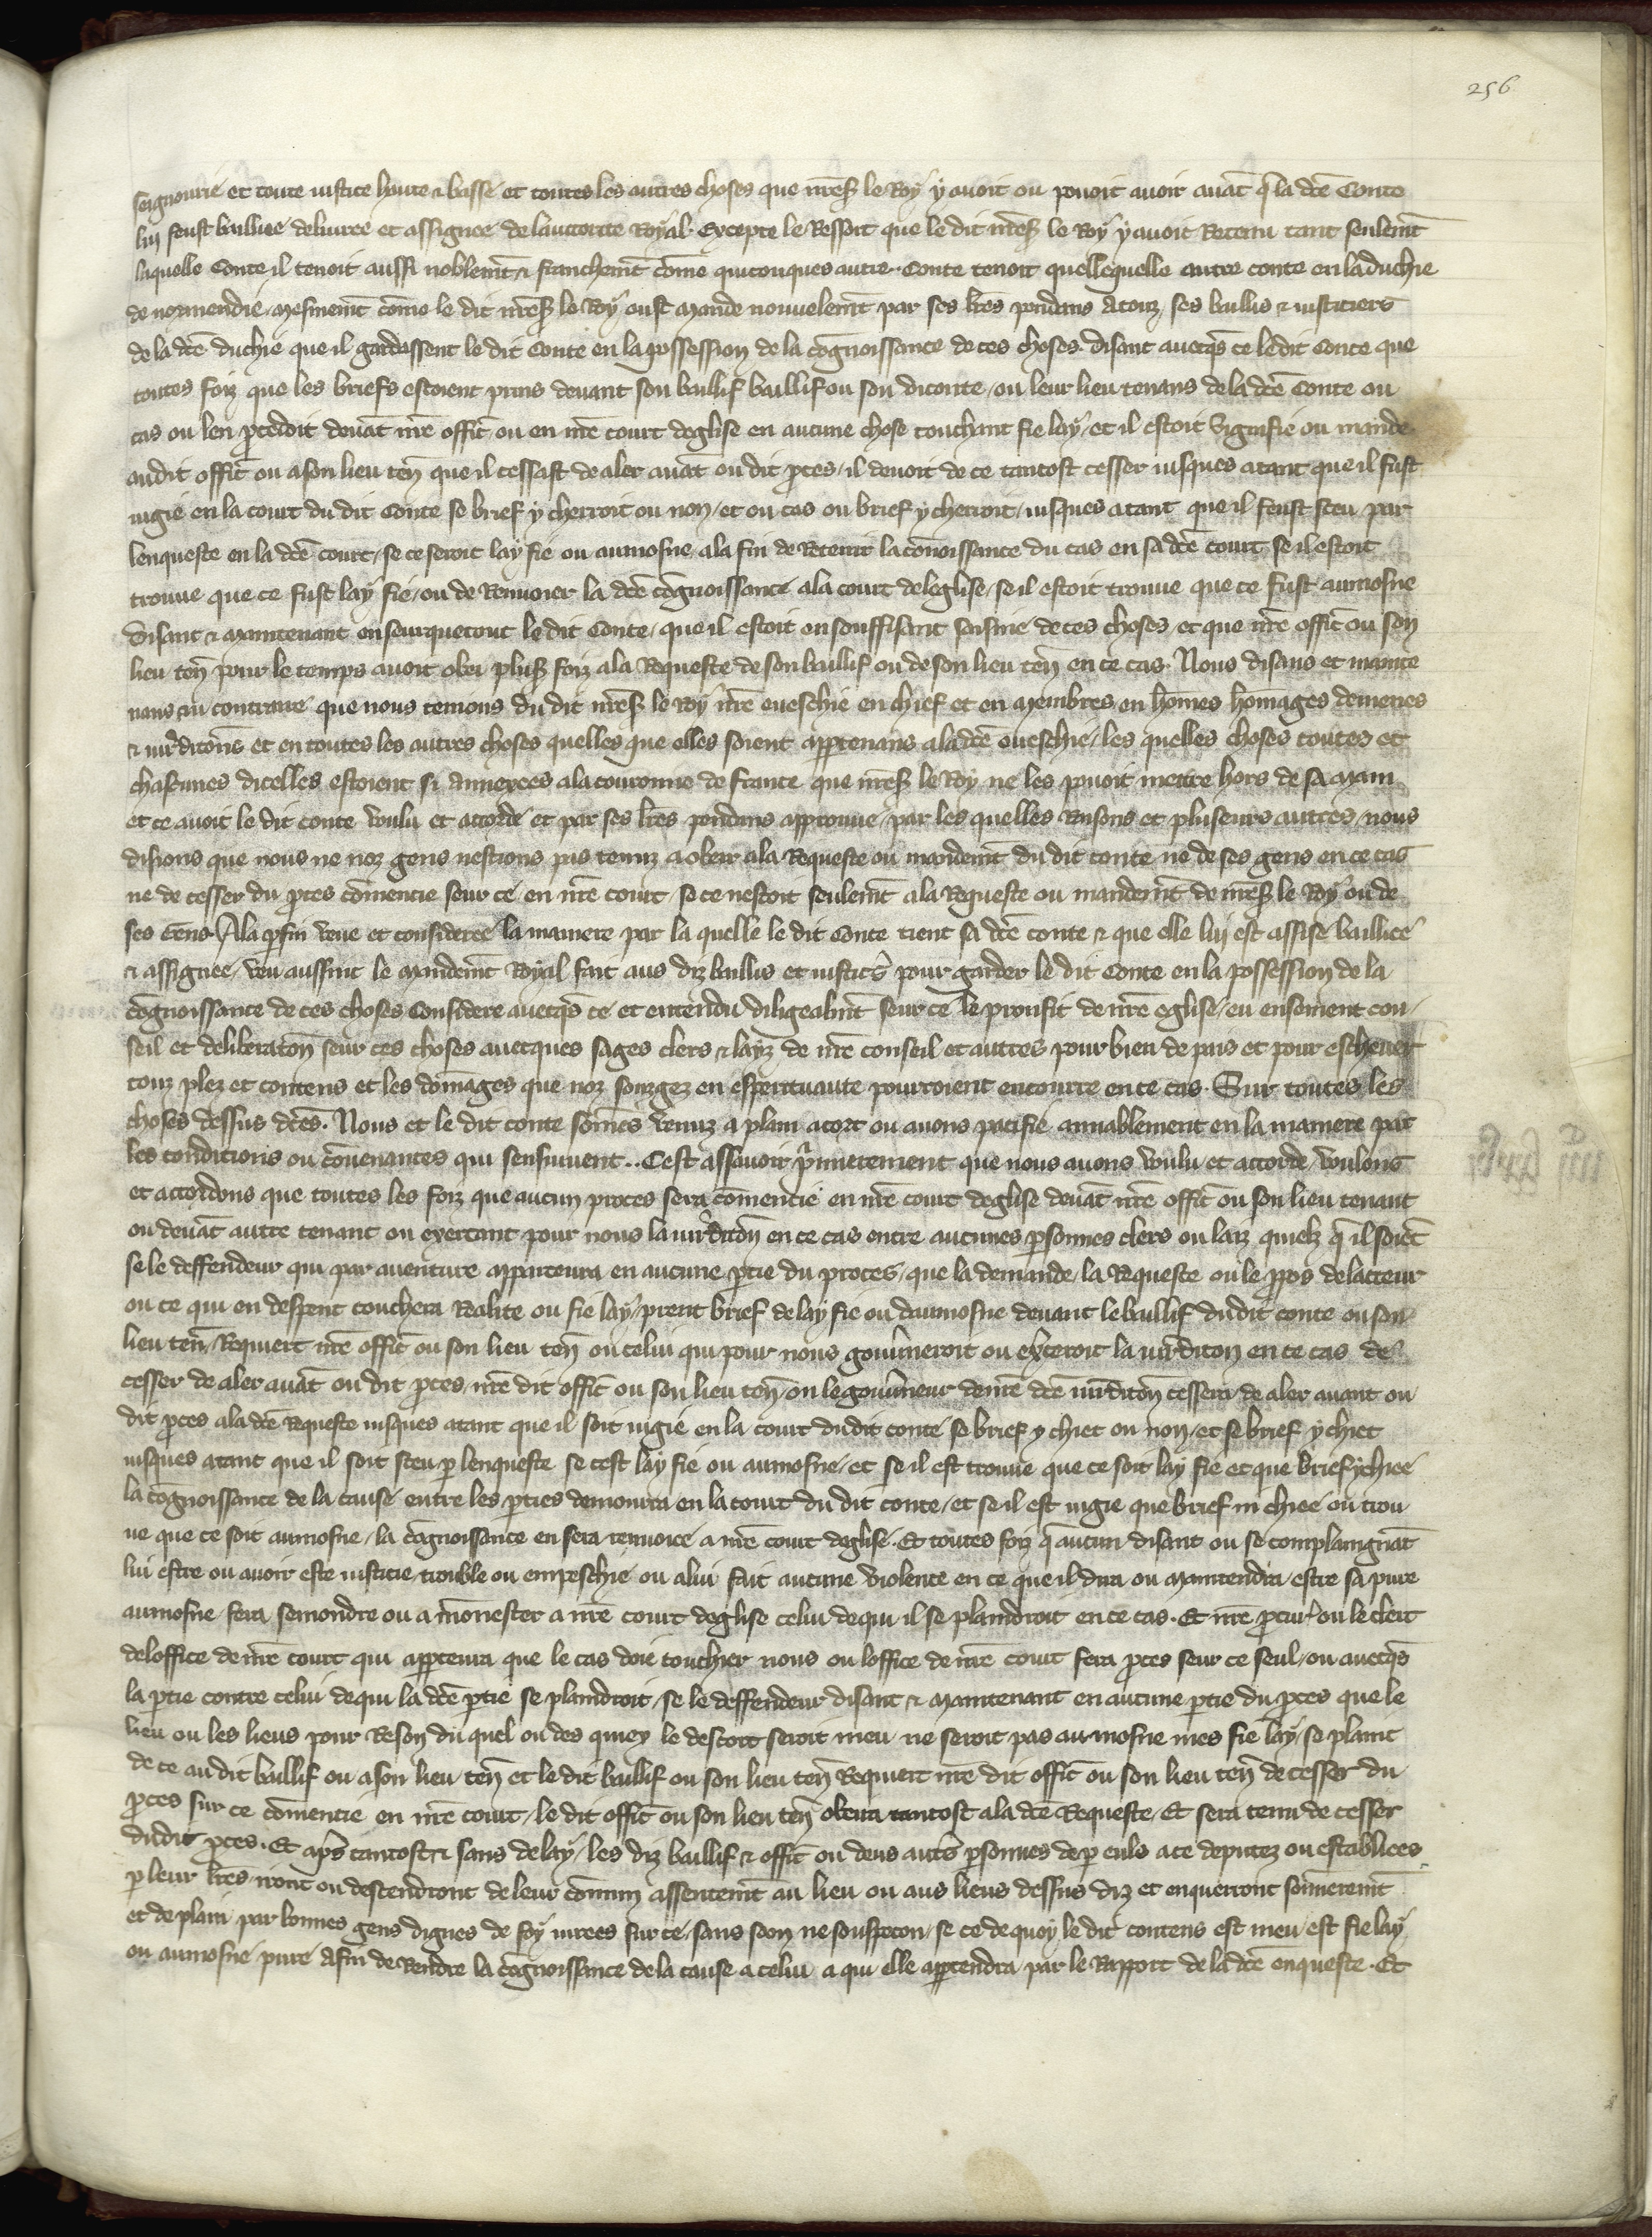 256
seignourie et toute iustice haute & basse et toutes les autres choses que mr̃eß le Roy y avoit ou povoit avoir avāt q̄ la dc̄e Conte
lui feust baillie deliuree et assignee de lauctorite Royal. Excepte le Ressort que le dit mr̃eß le Roy y avoit Retenu tant seulemt̄
laquelle Conte il tenoit aussi noblemt̄ & franchemt̄ cōme quiconques autre. Conte tenoit quellequelle autre conte en la duchie
de normendie / Mesmemt̄ cōme le dit mr̃eß le Roy eust Mande nouvelemt̄ par ses lr̄es pendans Atouz ses baillis & iusticiers
de la dc̄e duchie que il gardassent le dit Conte en la possession de la cōgnoissance de ces choses. disant avecqs̄ ce le dit Conte que
toutes foiz que les briefs estoient prins devant son baillif baillif ou son viconte / ou leur lieu tenans de la dc̄e Conte ou
cas ou len p̄cedoit devāt nr̄e offic̄ ou en nr̄e court deglise en aucune chose touchant fie lay / et il estoit Signifie ou mande
audit offic̄ ou a son lieu ten̄ que il cessast de aler avāt ou dit p̄ces / il devoit de ce tantost cesser iusques atant que il fust
iugie en la court du dit Conte se brief y cherroit ou non / et ou cas ou brief y cherroit / iusques atant que il feust sceu par
lenqueste en la dc̄e court / se ce seroit lay fie ou aumosne ala fin de Retenir la cōnoissance du cas en sa dc̄e court se il estoit
trouve que ce fust lay fie / ou de Renvoier la dc̄e cōgnoissance ala court deleglise / se il estoit trouve que ce fust aumosne
disant & Maintenant enseurquetout le dit Conte / que il estoit en souffisant saisine de ces choses / et que nr̄e offic̄ ou son
lieu ten̄ pour le temps avoit obei pluß foiz ala Requeste de son baillif ou de son lieu ten̄ en ce cas. Nous disans et mainte
nans au contraire que nous tenions du dit mr̃eß le Roy nr̄e eveschie en chief et en Membres en hōmes hōmages demenes
& iur̄dicōns et en toutes les autres choses quelles que elles soient app̄tenans ala dc̄e eveschie / les quelles choses toutes et
chascunes dicelles estoient si Annexees ala couronne de france que mr̃eß le Roy ne les povoit mettre hors de sa Main
et ce avoit le dit conte voulu et accorde et par ses lr̄es pendans approuve / par les quelles Raisons et pluseurs autres / nous
disions que nous ne noz gens nestions pas tenuz a obeir ala Requeste ou mandemt̄ du dit conte ne de ses gens en ce cas
ne de cesser du p̄ces cōmencie seur ce en nr̄e court / se ce nestoit seulemt̄ ala Requeste ou mandemt̄ de mr̃eß le Roy ou de
ses Gens. Ala p̄fin veue et consideree la maniere par la quelle le dit Conte tient sa dc̄e conte & que elle lui est assise baillice
& assignee / veu aussinc le Mandemt̄ Royal fait aus diz baillis et iustic̄s pour garder le dit Conte en la possession de la
cōgnoissance de ces choses Considere avecqs̄ ce et entendu diligeabmt̄ seur ce le proufit de nr̄e eglise / eu ensement con-
seil et deliberacōn seur ces choses avecques sages clers & layz de nr̄e conseil et autres pour bien de pais et pour eschever
touz plez et contens et les dōmages que noz sougez en esperituaute pourroient encourre en ce cas. Sur toutes les
choses dessus dc̄es. Nous et le dit conte sōmes venuz a plain acort ou avons pacifie amiablement en la maniere par
les condicions ou cōvenances qui sensuivent.. Cest assavoir p̄mierement que nous avons voulu et accorde / voulons
et accordons que toutes les foiz que aucun proces sera cōmencie en nr̄e court deglise devāt nr̄e offic̄ ou son lieu tenant
ou devāt autre tenant ou exercant pour nous la iur̄dicōn en ce cas entre aucunes p̄sonnes clers ou laiz quielz q̄ il soiēt
se le deffendeur qui par aventure apparcevra en aucune p̄tie du proces / que la demande / la Requeste ou le p̄pos de lacteur
ou ce qui en despent touchera Realite ou fie lay / prent brief de lay fie ou daumosne devant le baillif dudit conte ou son
lieu ten̄ / Requiert nr̄e offic̄ ou son lieu ten̄ ou celui qui pour nous gouv̄neroit ou ex̄ceroit la iur̄dicōn en ce cas de
cesser de aler avāt ou dit p̄ces / nr̄e dit offic̄ ou son lieu ten̄ / ou le gouv̄neur de nr̄e dc̄e iur̄dicōn cessera de aler avant ou
dit p̄ces ala dc̄e Requeste iusques atant que il soit iugie en la court dudit conte se brief y chiet ou non / et se brief y chiet
iusques atant que il soit sceu p̄ lenqueste se cest lay fie ou aumosne / et se il est trouve que ce soit lay fie et que brief y chiee
la cōgnoissance de la cause entre les p̄ties demourra en la court du dit conte / et se il est iugie que brief ni chiee ou trou
ve que ce soit aumosne / la cōgnoissance en sera renvoiee a nr̄e court deglise. Et toutes foiz q̄ aucun disant ou se complaingnāt
lui estre ou avoir este iusticie trouble ou empeschie ou a lui fait aucune violence en ce que il dira ou Maintendra estre sa pure
aumosne / fera semondre ou a mōnester a nr̄e court deglise celui de qui il se plaindroit en ce cas. Et nr̄e p̄cur̄ ou le clerc
deloffice de nr̄e court qui app̄cevra que le cas doie touchier nous ou loffice de nr̄e court fera p̄ces seur ce seul / ou avecqs̄
la p̄tie contre celui de qui la dc̄e p̄tie se plaindroit / se le deffendeur disant & Maintenant en aucune p̄tie du p̄ces que le
lieu ou les lieus pour Reson du quel ou des quiex le descort seroit meu ne seroit pas aumosne mes fie lay / se plaint
de ce au dit baillif ou a son lieu ten̄ et le dit baillif ou son lieu ten̄ Requiert nr̄e dit offic̄ ou son lieu ten̄ de cesser du
p̄ces sur ce cōmencie en nr̄e court / le dit offic̄ ou son lieu ten̄ obeira tantost ala dc̄e Requeste / Et sera tenu de cesser
dudit p̄ces. Et ap̄s tantost & sans delay / les diz baillif & offic̄ ou deus aut̄s p̄sonnes de p̄ euls a ce deputez ou establiees
p̄ leur lr̄es iront ou descendront de leur cōmun assentemt̄ au lieu ou aus lieus dessus diz et enquerront sōmeremt̄
et de plain par bonnes gens dignes de foy iurees sur ce / sans soon ne souspecon / se ce de quoy le dit contens est meu / est fie lay
ou aumosne pure Afin de Rendre la cōgnoissance de la cause a celui a qui elle app̄tendra par le Rapport de la dc̄e enqueste. Et